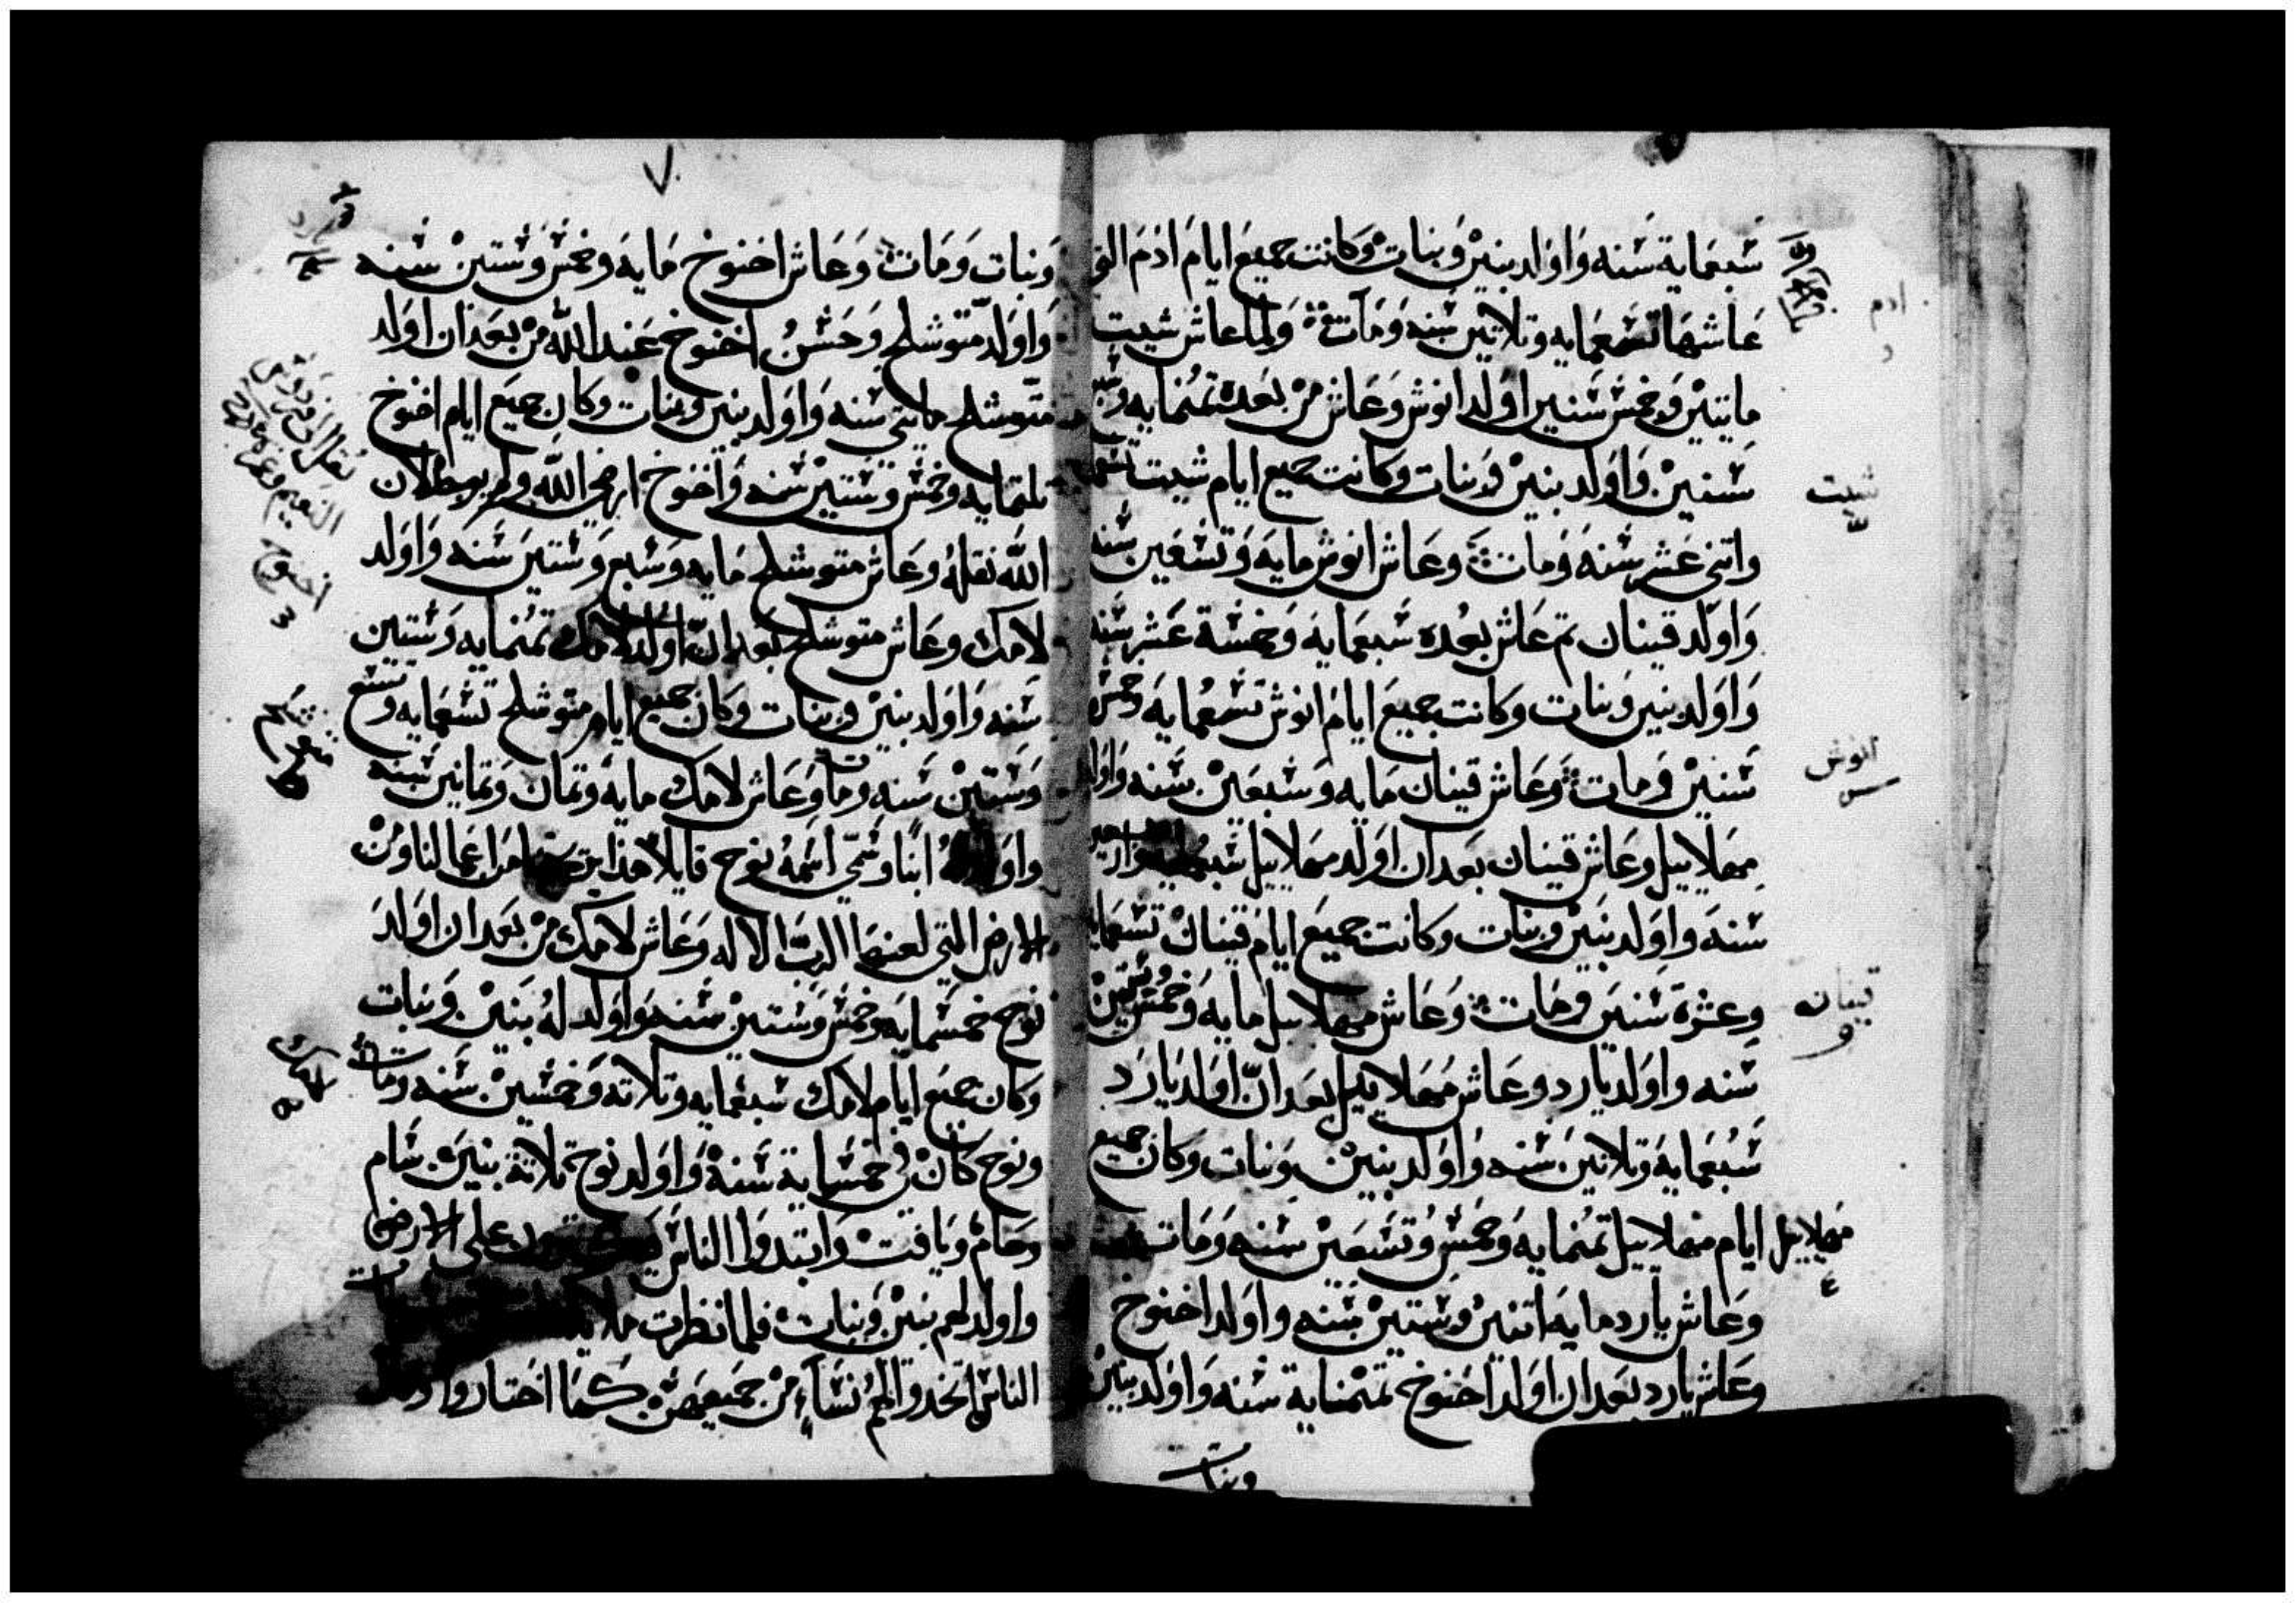 شبعماية شنه واولد بنين وبنات وكانت جميع ايام ادم التي
عاشها تشعمايه وتلاتين شنه ومات ولما عاش شيت
مايتين وخمش شنين اولد انوش وعاش من بعده تمنمايه
شنين واولد بنين وبنات وكانت جميع ايام شيت
واتني عشر شنه ومات وعاش انوش مايه وتشعين شنه
واولد قينان تم عاش بعده شبعمايه وخمشة عشر شنه
واولد بنين وبنات وكانت جميع ايام انوش تشعمايه وخمش
شنين ومات وعاش قينان مايه وشبعين شنه واولد
مهلاييل وعاش قينان بعد ان اولد مهلاييل
شنه واولد بنين وبنات وكانت جميع ايام قينان تشعمايه
وعشرة شنين ومات وعاش مهلاييل مايه وخمش وشتين
شنه واولد يارد وعاش مهلاييل بعد ان اولد يارد
شبعمايه وتلاتين شنه واولد بنين وبنات وكان جميع
ايام مهلاييل تمنمايه وخمش وتشعين شنه ومات
وعاش يارد مايه اتنين وشتين شنه واولد اخنوخ
وعاش يارد بعد ان اولد اخنوخ تمنماية شنه واولد بنين
وبنات
ادم
شيت
انوش
قينان
مهلاييل
٧
وبنات ومات وعاش اخنوخ مايه وخمش وشتين شنه
واولد متوشلح وحشن اخنوخ عند الله من بعد ان اولد
متوشلح مايتي شنه واولد بنين وبنات وكان جميع ايام اخنوخ
تلتمايه وخمش وشتين شنه واخنوخ ارضي الله ولم يوجد لان
الله نقله وعاش متوشلح مايه وشبع وشتين شنه واولد
لامك وعاش متوشلح بعد ان اولد لامك تمنمايه وشتين
شنه واولد بنين وبنات وكان جميع ايام متوشلح تشعمايه وتشع
وشتين شنه ومات وعاش لامك مايه وتمان وتمانين شنه
واولد ابنا وشمي اشمه نوح قايلا هذا من اعمالنا ومن
الارض التي لعنها الرب الاله وعاش لامك من بعد ان اولد
نوح خمشمايه وخمش وشتين شنه واولد له بنين وبنات
وكان جميع ايام لامك شبعمايه وتلاته وخمشين شنه ومات
ونوح كان في خمشماية شنه واولد نوح تلاتة بنين شام
وحام ويافت وابتدوا الناش على الارض
واولد لهم بنين وبنات فلما نظرت
الناش اتخدوا لهم نشاء من جميعهن كما اختاروا
نقل الى فردوش
النعيم
اخنوخ
متوشلح
لامك